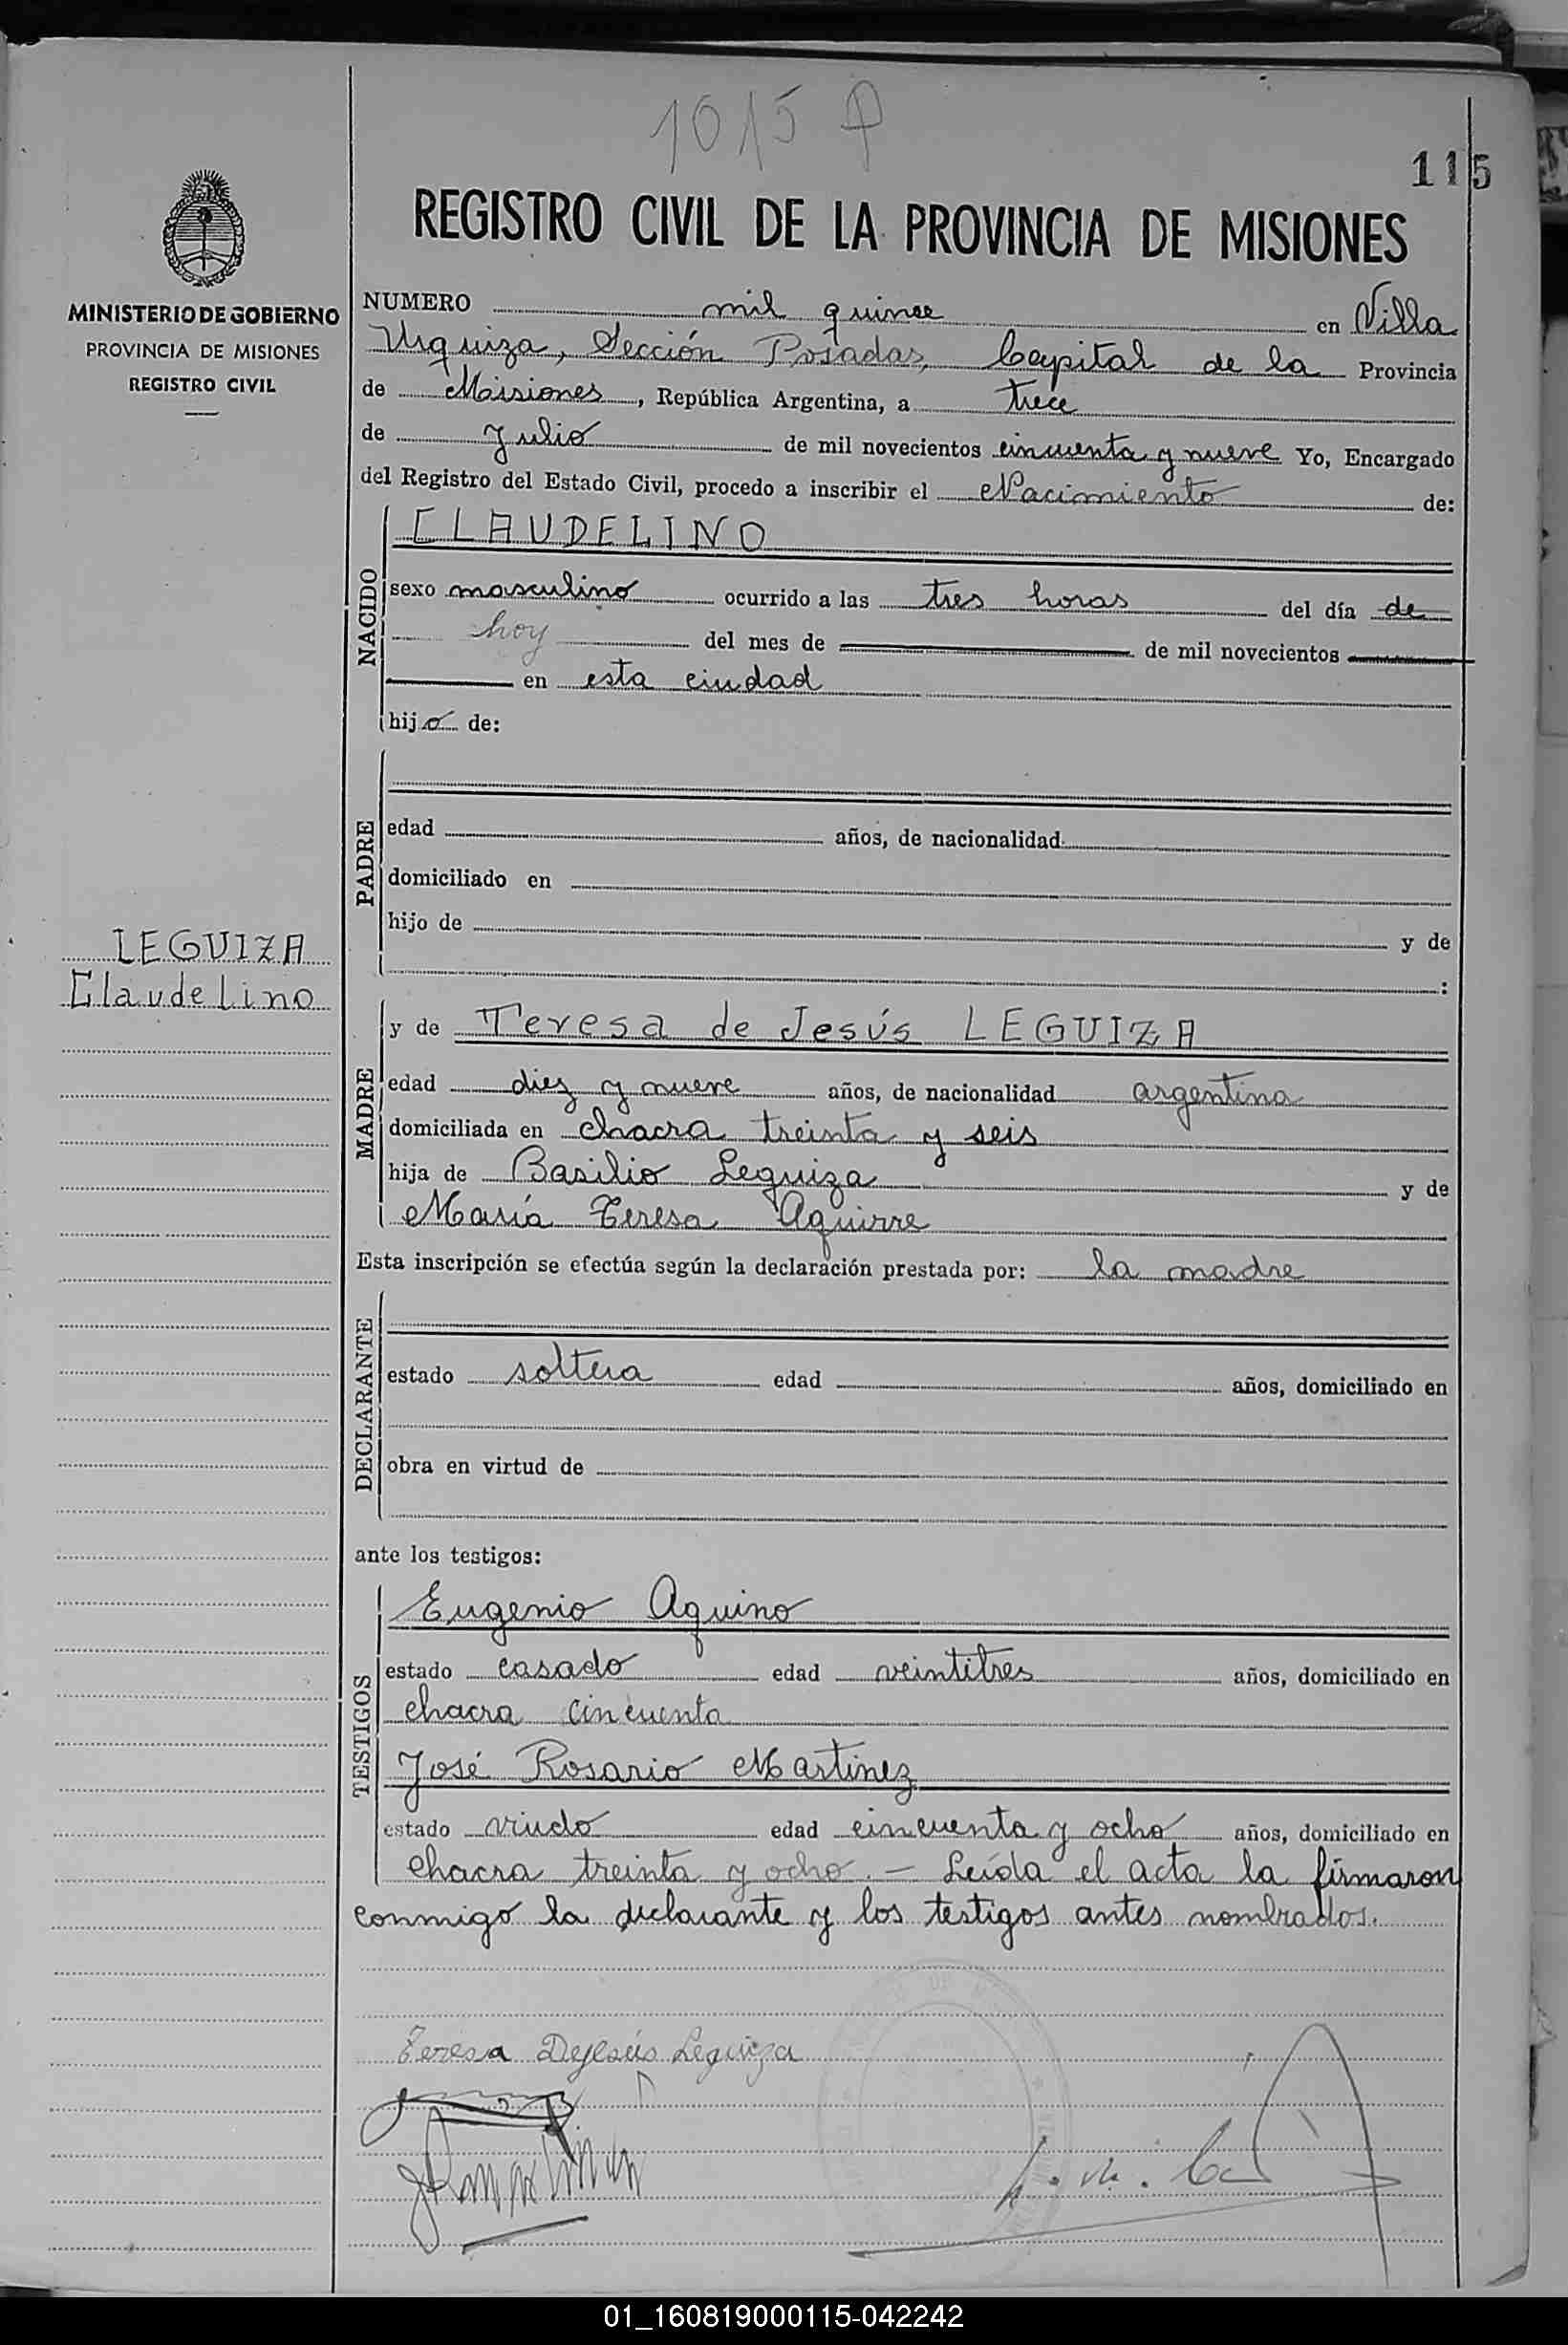 1015 P
115
REGISTRO CIVIL DE LA PROVINCIA DE MISIONES
MINISTERIO DE GOBIERNO
PROVINCIA DE MISIONES
REGISTRO CIVIL
NUMERO mil quince en Villa
Urquiza, Sección Posadas, Capital de la Provincia
de Misiones, República Argentina, a trece
de Julio de mil novecientos cincuenta y nueve Yo, Encargado
del Registro del Estado Civil, procedo a inscribir el Nacimiento de:
NACIDO
CLAUDELINO
sexo masculino ocurrido a las tres horas del día de
hoy del mes de de mil novecientos
en esta ciudad
hijo de:
PADRE
edad años, de nacionalidad
domiciliado en
hijo de y de
:
LEGUIZA
Claudelino
MADRE
y de Teresa de Jesús LEGUIZA
edad diez y nueve años, de nacionalidad argentina
domiciliada en chacra treinta y seis
hija de Basilio Leguiza y de
María Teresa Aguirre
Esta inscripción se efectúa según la declaración prestada por: la madre
DECLARANTE
estado soltera edad años, domiciliado en
obra en virtud de
ante los testigos:
TESTIGOS
Eugenio Aquino
estado casado edad veintitres años, domiciliado en
chacra cincuenta
José Rosario Martinez
estado viudo edad cincuenta y ocho años, domiciliado en
chacra treinta y ocho. - Leída el acta la firmaron
conmigo la declarante y los testigos antes nombrados.
Teresa DeJesús Leguiza
01_160819000115-042242